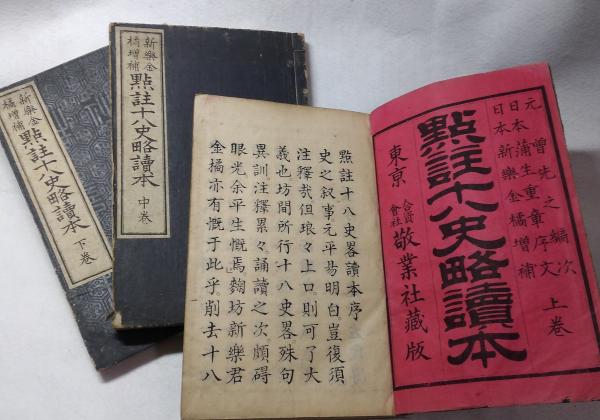 新樂金
橘增補
點註十八史略讀本
下卷
新樂金
橘增補
點註十八史略讀本
中卷
元 曾先之編次
日本 蒲生重章序文
日本 新樂金橘增補
上卷
點註十八史略讀本
東京
合資
會社
敬業社藏版
點註十八史畧讀本序
史之叙事元平易明白豈復須
注釋哉但琅々上口則可了大
義也坊間所行十八史畧殊句
異訓注釋累々誦讀之次頗碍
眼光余平生慨焉麴坊新樂君
金橘亦有慨于此乎削去十八